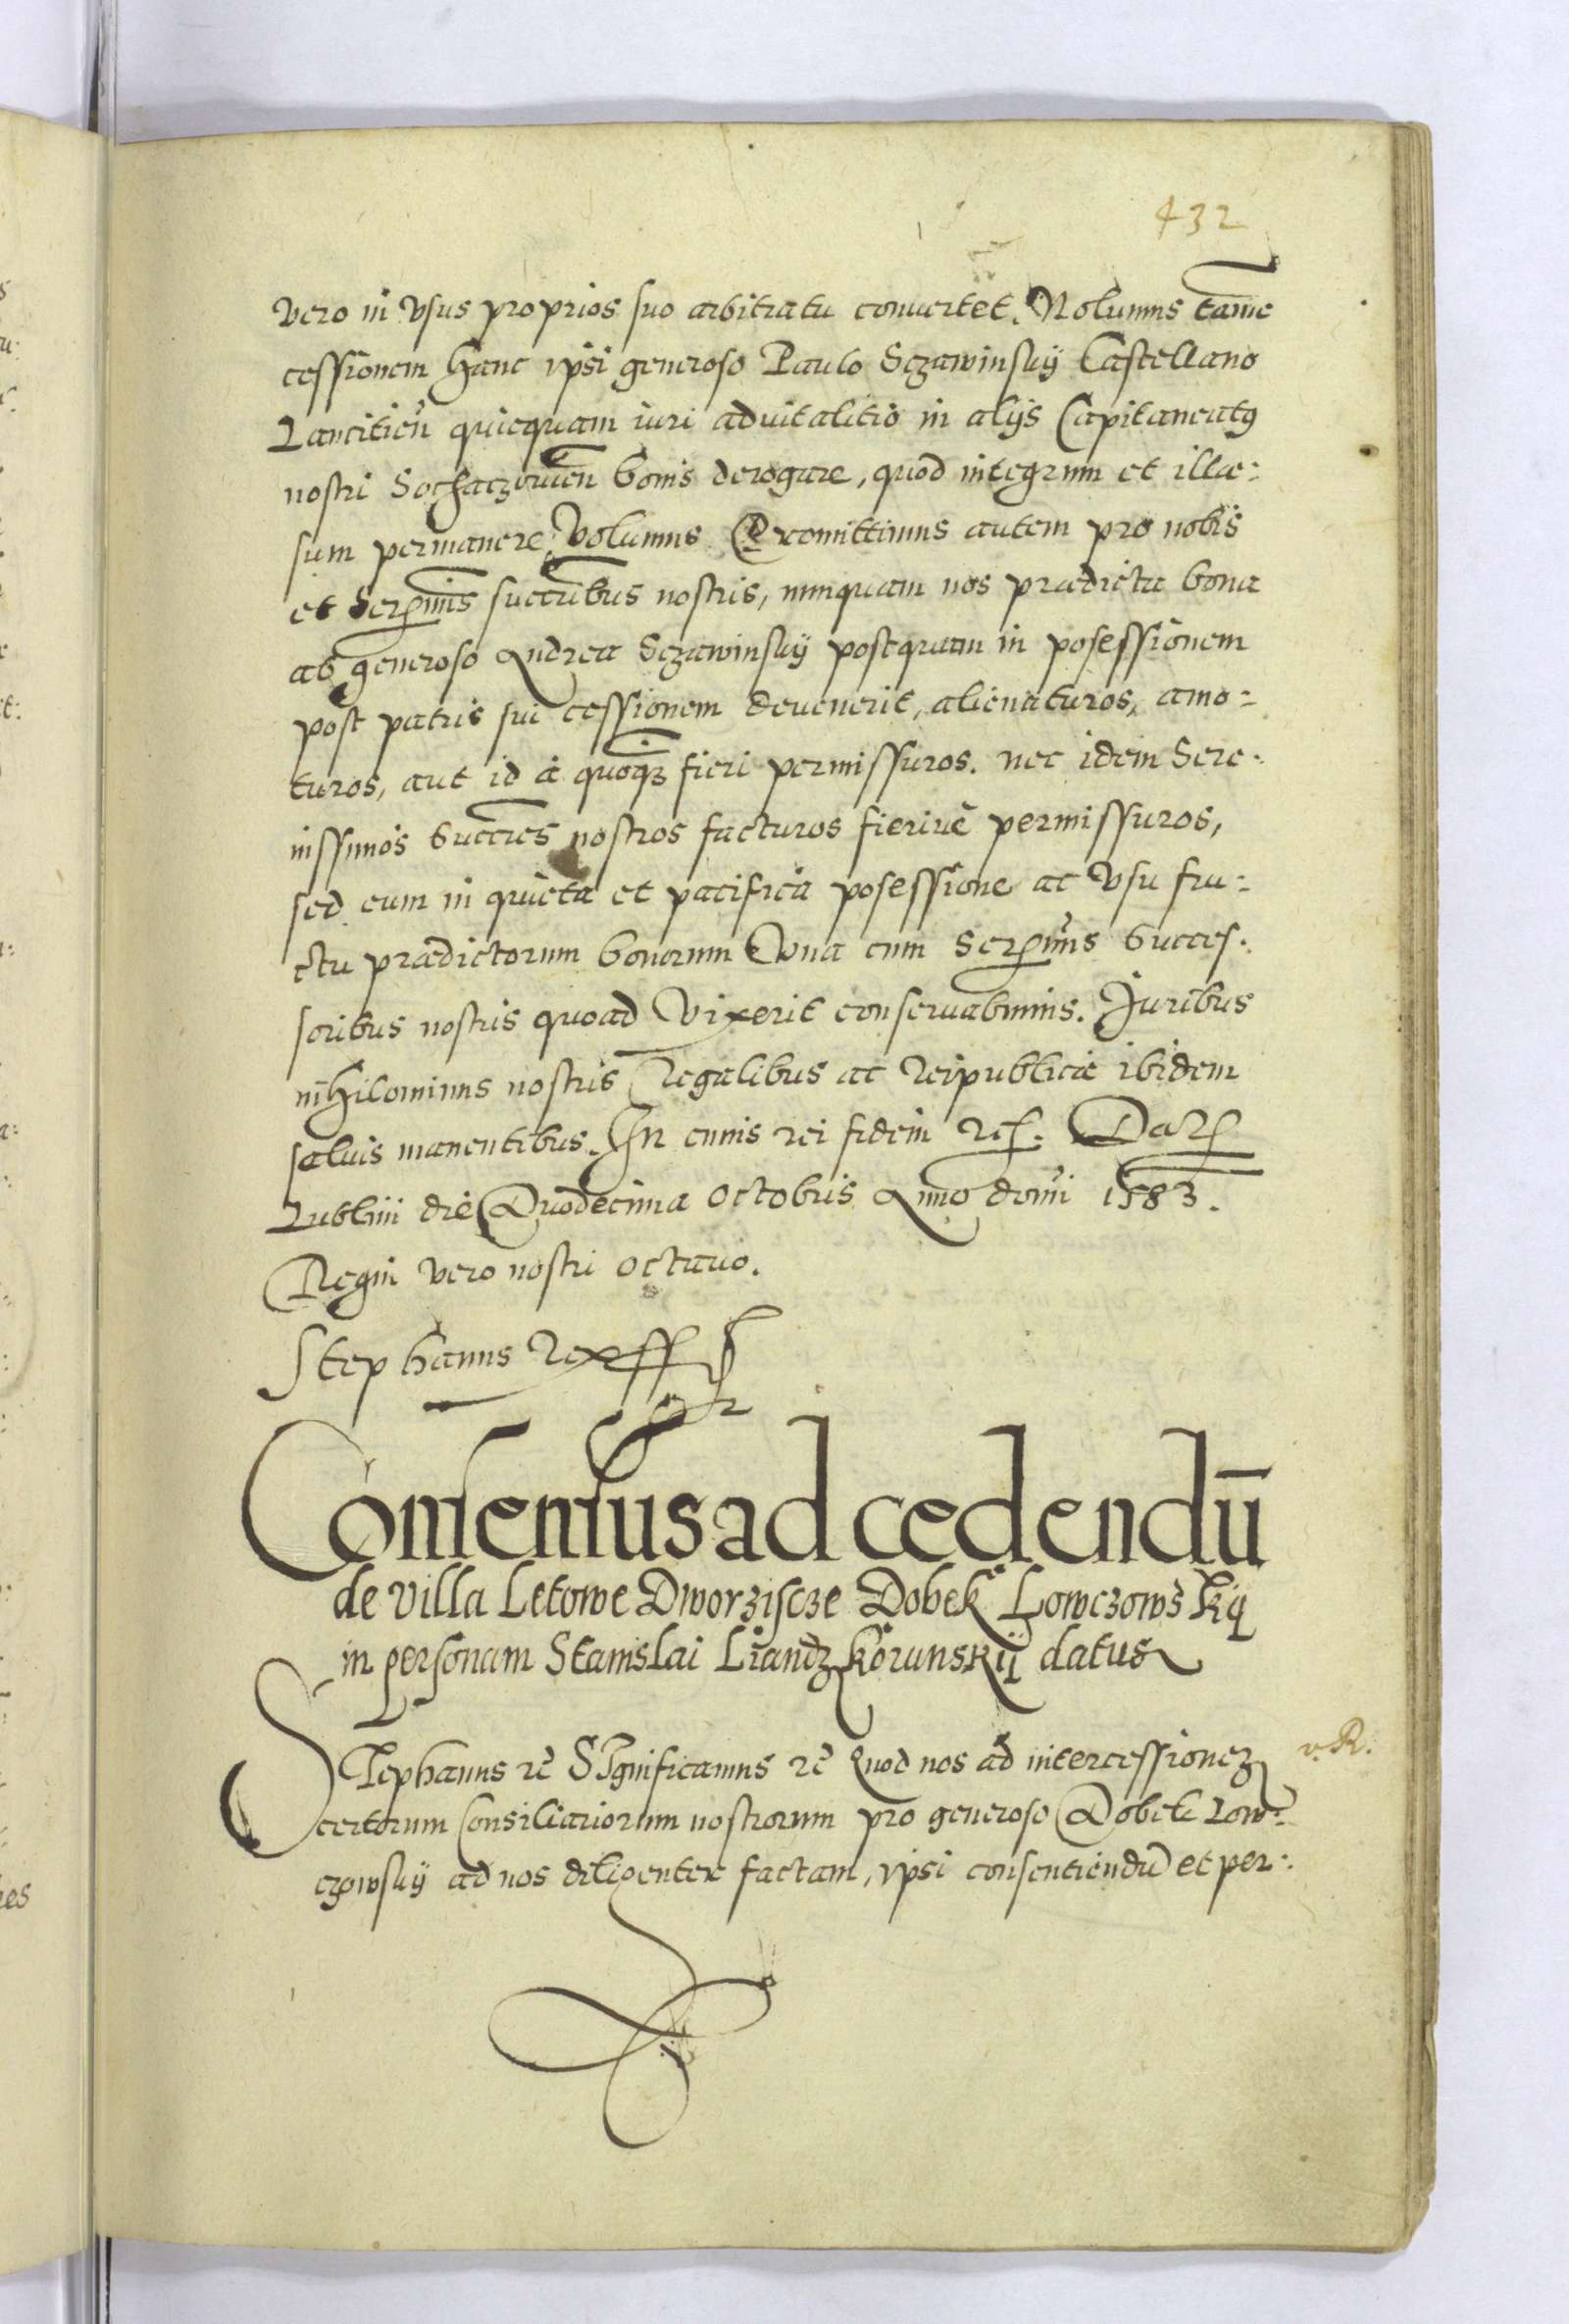 432
vero in vsus proprios suo arbitratu conuertet. Nolumus tame
cessionem hanc ipsi generoso Paulo Sczawinsky Castellano
Lancitień quicquam iuri aduitalitio in alijs Capitaneatꝰ
nostri Sochaczouień bonis derogare, quod integrum et illæ:
sum permanere Volumus Promittimus autem pro nobis
et Serēmis succr̄ibus nostris, nunquam nos prædicta bona
ab generoso Andrea Sczawinsky postquam in posessionem
post patris sui cessionem deuenerit, alienaturos, amo:
turos, aut id à quoqꝫ fieri permissuros. nec idem Sere:
nissimos Succr̄es nostros facturos fieriuè permissuros,
sed eum in quieta et pacifica posessione ac Vsu fru:
ctu prædictorum bonorum Vna cum Serēmis Succes:
soribus nostris quoad Vixerit conseruabimus. Juribus
nihilominus nostris Regalibus ac Reipublicæ ibidem
saluis manentibus. In cuius rei fidem
Lublini die Duodecima Octobris Anno domī 1583.
Regni vero nostri octauo.
Stephanus Rex
Consensus ad cedendū
de villa Letowe Dworziscze Dobek Lowczowskij
in personam Stanislai Liandzkorunskij datus
Stephanus rē Significamus rē Quod nos ad intercessioneꝫ
v. R.
certorum Consiliariorum nostrorum pro generoso Dobek Low:
czowsky ad nos diligenter factam, ipsi consentiendū et per: